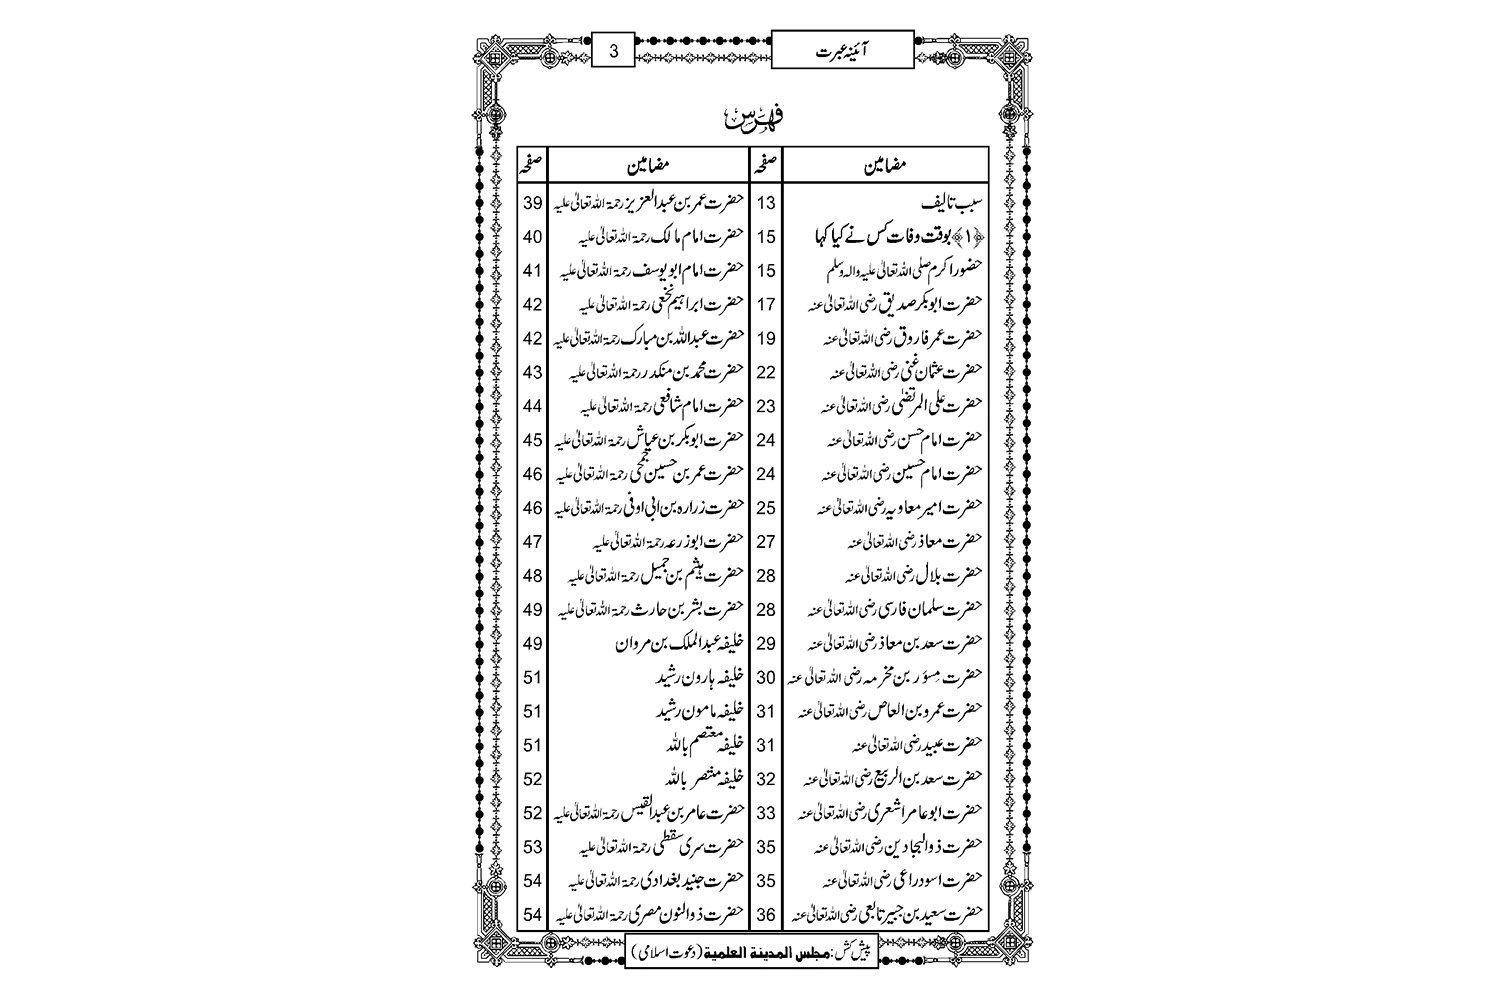 آئینۂ عبرت 3
فہرس
مضامین صفحہ مضامین صفحہ
سبب تالیف 13 حضرت عمر بن عبدالعزیز رحمۃ اللہ تعالیٰ علیہ 39
﴿۱﴾ بوقت وفات کس نے کیا کہا 15 حضرت امام مالک رحمۃ اللہ تعالیٰ علیہ 40
حضور اکرم صلی اللہ تعالیٰ علیہ والہ وسلم 15 حضرت امام ابو یوسف رحمۃ اللہ تعالیٰ علیہ 41
حضرت ابوبکر صدیق رضی اللہ تعالیٰ عنہ 17 حضرت ابراہیم نخعی رحمۃ اللہ تعالیٰ علیہ 42
حضرت عمر فاروق رضی اللہ تعالیٰ عنہ 19 حضرت عبداللہ بن مبارک رحمۃ اللہ تعالیٰ علیہ 42
حضرت عثمان غنی رضی اللہ تعالیٰ عنہ 22 حضرت محمد بن منکدر رحمۃ اللہ تعالیٰ علیہ 43
حضرت علی المرتضٰی رضی اللہ تعالیٰ عنہ 23 حضرت امام شافعی رحمۃ اللہ تعالیٰ علیہ 44
حضرت امام حسن رضی اللہ تعالیٰ عنہ 24 حضرت ابوبکر بن عیاش رحمۃ اللہ تعالیٰ علیہ 45
حضرت امام حسین رضی اللہ تعالیٰ عنہ 24 حضرت عمر بن حسین جمحی رحمۃ اللہ تعالیٰ علیہ 46
حضرت امیر معاویہ رضی اللہ تعالیٰ عنہ 25 حضرت زرارہ بن ابی اوفی رحمۃ اللہ تعالیٰ علیہ 46
حضرت معاذ رضی اللہ تعالیٰ عنہ 27 حضرت ابوزرعہ رحمۃ اللہ تعالیٰ علیہ 47
حضرت بلال رضی اللہ تعالیٰ عنہ 28 حضرت ہیثم بن جمیل رحمۃ اللہ تعالیٰ علیہ 48
حضرت سلمان فارسی رضی اللہ تعالیٰ عنہ 28 حضرت بشر بن حارث رحمۃ اللہ تعالیٰ علیہ 49
حضرت سعد بن معاذ رضی اللہ تعالیٰ عنہ 29 خلیفہ عبدالملک بن مروان 49
حضرت مِسْوَر بن مخرمہ رضی اللہ تعالیٰ عنہ 30 خلیفہ ہارون رشید 51
حضرت عمرو بن العاص رضی اللہ تعالیٰ عنہ 31 خلیفہ مامون رشید 51
حضرت عبید رضی اللہ تعالیٰ عنہ 31 خلیفہ معتصم باللہ 51
حضرت سعد بن الربیع رضی اللہ تعالیٰ عنہ 32 خلیفہ منتصر باللہ 52
حضرت ابوعامر اشعری رضی اللہ تعالیٰ عنہ 33 حضرت عامر بن عبدالقیس رحمۃ اللہ تعالیٰ علیہ 52
حضرت ذوالبجادین رضی اللہ تعالیٰ عنہ 35 حضرت سری سقطی رحمۃ اللہ تعالیٰ علیہ 53
حضرت اسود راعی رضی اللہ تعالیٰ عنہ 35 حضرت جنید بغدادی رحمۃ اللہ تعالیٰ علیہ 54
حضرت سعید بن جبیر تابعی رضی اللہ تعالیٰ عنہ 36 حضرت ذوالنون مصری رحمۃ اللہ تعالیٰ علیہ 54
پیش کش: مجلس المدینة العلمیة (دعوت اسلامی)